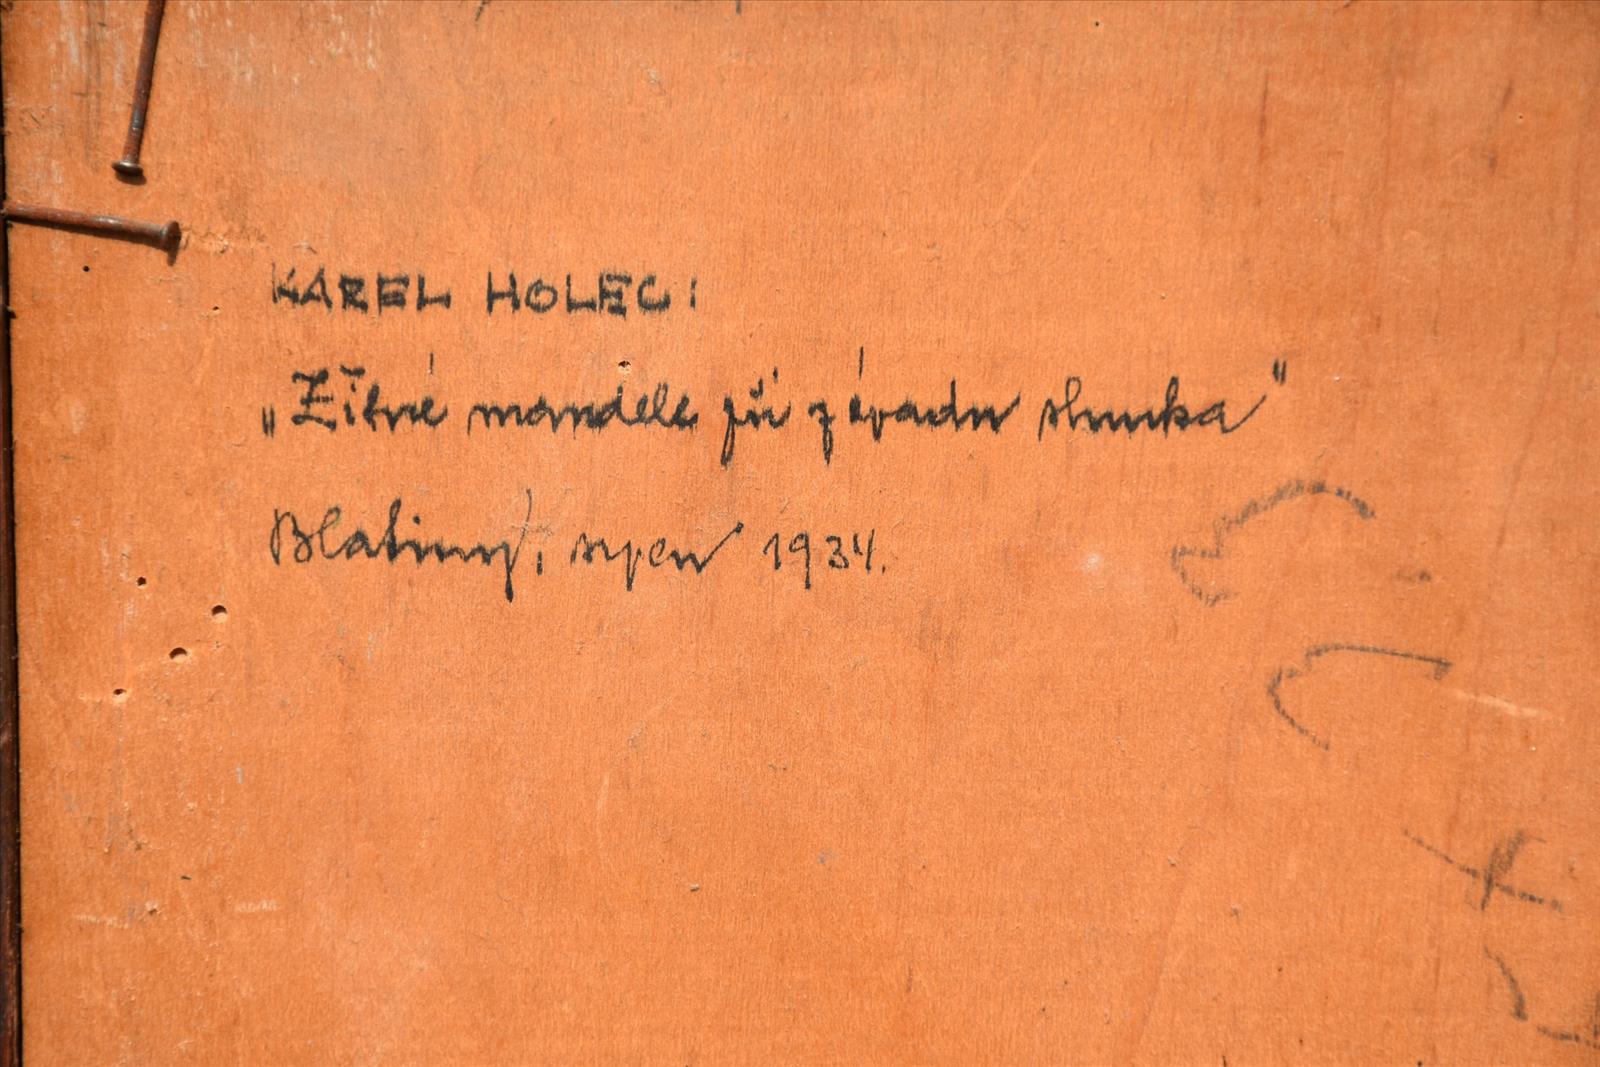 KAREL HOLEC:
„Žitné mandele při západu slunka"
Blatiny, srpen 1934.